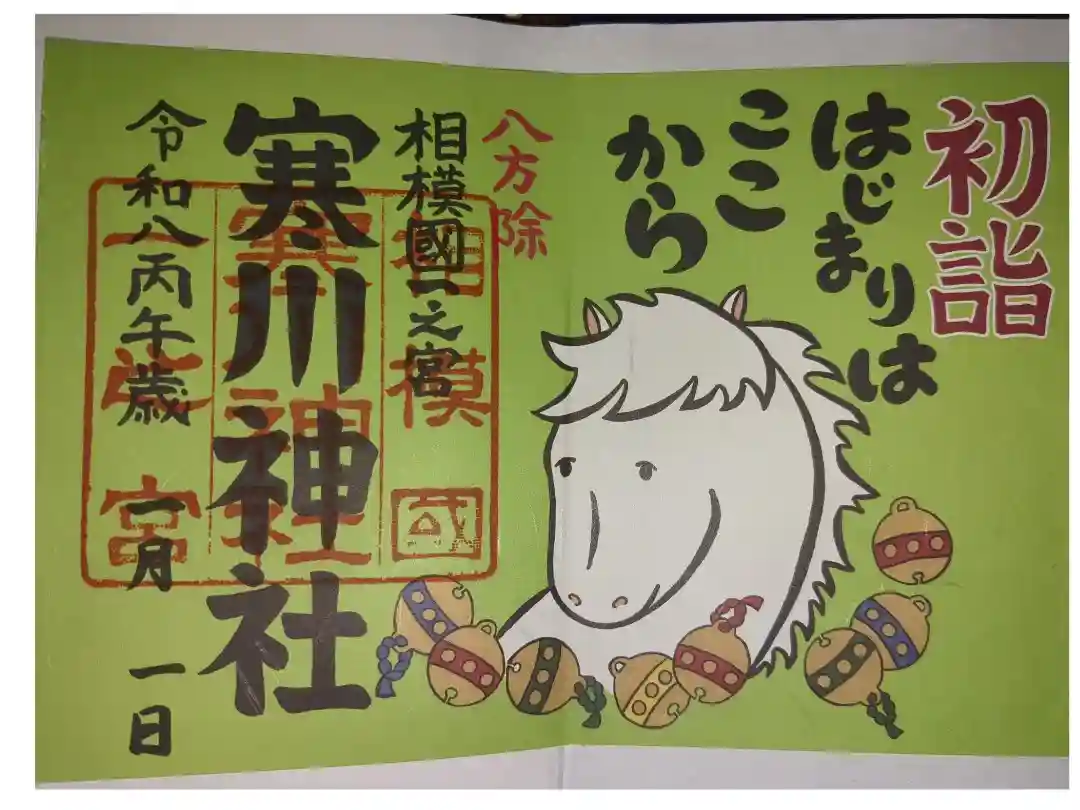 初詣
はじまりは
ここ
から
八方除
相模國一之宮
寒川神社
令和八丙午歳 一月 一日
相模國
寒川神社
一之宮